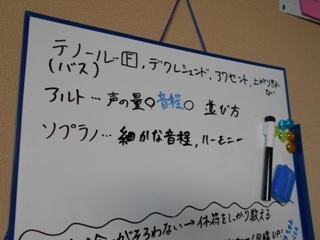 テノール…F,デクレシェンド,アクセント,上がりきれ
(バス) ない
アルト…声の量○音程○ 並び方
ソプラノ…細かな音程,ハーモニー
がそろわない→休符をしっかり数える